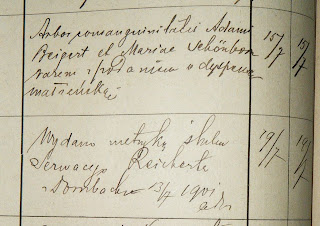 Arbor consanguinitatis Adami
Beigert et Mariae Schönborn
razem z podaniem o dyspensę
małżeńską
15/7 15/7
Wydano metrykę ślubu
Serwacego Reichert
z Dornbachu 13/7 1901
19/7 19/7